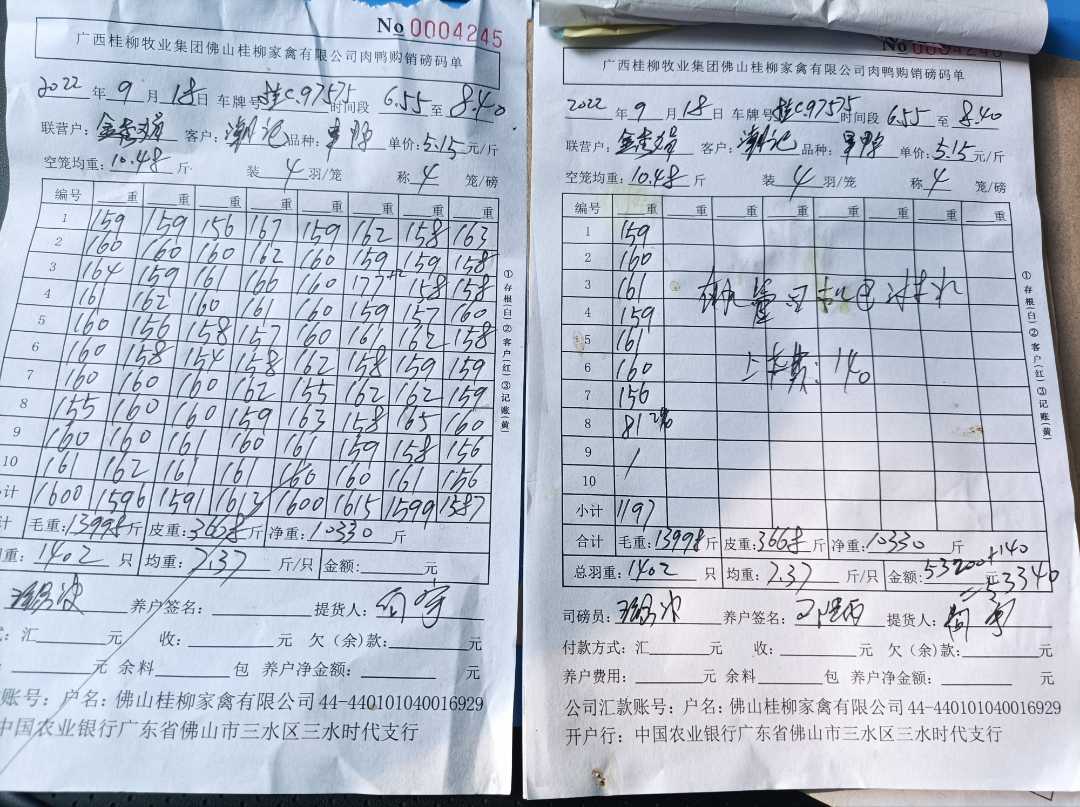 No 0004245
广西桂柳牧业集团佛山桂柳家禽有限公司肉鸭购销磅码单
2022 年 9 月 18 日 车牌号 桂C.97575 时间段 6.55 至 8.40
联营户: 客户: 潮记 品种: 单价: 5.15 元/斤
空笼均重: 10.48 斤 装 4 羽/笼 称 4 笼/磅
编号 重 重 重 重 重 重 重 重
1 159 159 156 167 159 162 158 163
2 160 160 160 162 160 159 159 158
3 164 159 161 166 160 177+2 158 158
4 161 162 160 161 160 159 157 160
5 160 156 158 157 160 161 162 158
6 160 158 154 158 162 158 159 159
7 160 160 160 162 155 162 162 159
8 155 160 160 159 163 158 165 160
9 160 160 161 160 161 159 158 156
10 161 162 161 161 160 160 161 156
计 1600 1596 1591 1613 1600 1615 1599 1587
计 毛重: 13998 斤 皮重: 3668 斤 净重: 10330 斤
重: 1402 只 均重: 7.37 斤/只 金额:
养户签名: 提货人:
式: 汇 元 收: 元 欠(余)款: 元
元 余料 包 养户净金额: 元
账号: 户名: 佛山桂柳家禽有限公司 44-440101040016929
中国农业银行广东省佛山市三水区三水时代支行
①存根(白)②客户(红)③记账(黄)
No 0004246
广西桂柳牧业集团佛山桂柳家禽有限公司肉鸭购销磅码单
2022 年 9 月 18 日 车牌号 桂C.97575 时间段 6.55 至 8.40
联营户: 客户: 潮记 品种: 单价: 5.15 元/斤
空笼均重: 10.48 斤 装 4 羽/笼 称 4 笼/磅
编号 重 重 重 重 重 重 重 重
1 159
2 160
3 161
4 159
5 161
6 160 上车费: 140
7 156
8 81
9 /
10
小计 1197
合计 毛重: 13998 斤 皮重: 3668 斤 净重: 10330 斤
总羽重: 1402 只 均重: 7.37 斤/只 金额: 53200+140 元
=53340
司磅员: 养户签名: 提货人:
付款方式: 汇 元 收: 元 欠(余)款: 元
养户费用: 元 余料 包 养户净金额: 元
公司汇款账号: 户名: 佛山桂柳家禽有限公司 44-440101040016929
开户行: 中国农业银行广东省佛山市三水区三水时代支行
①存根(白)②客户(红)③记账(黄)